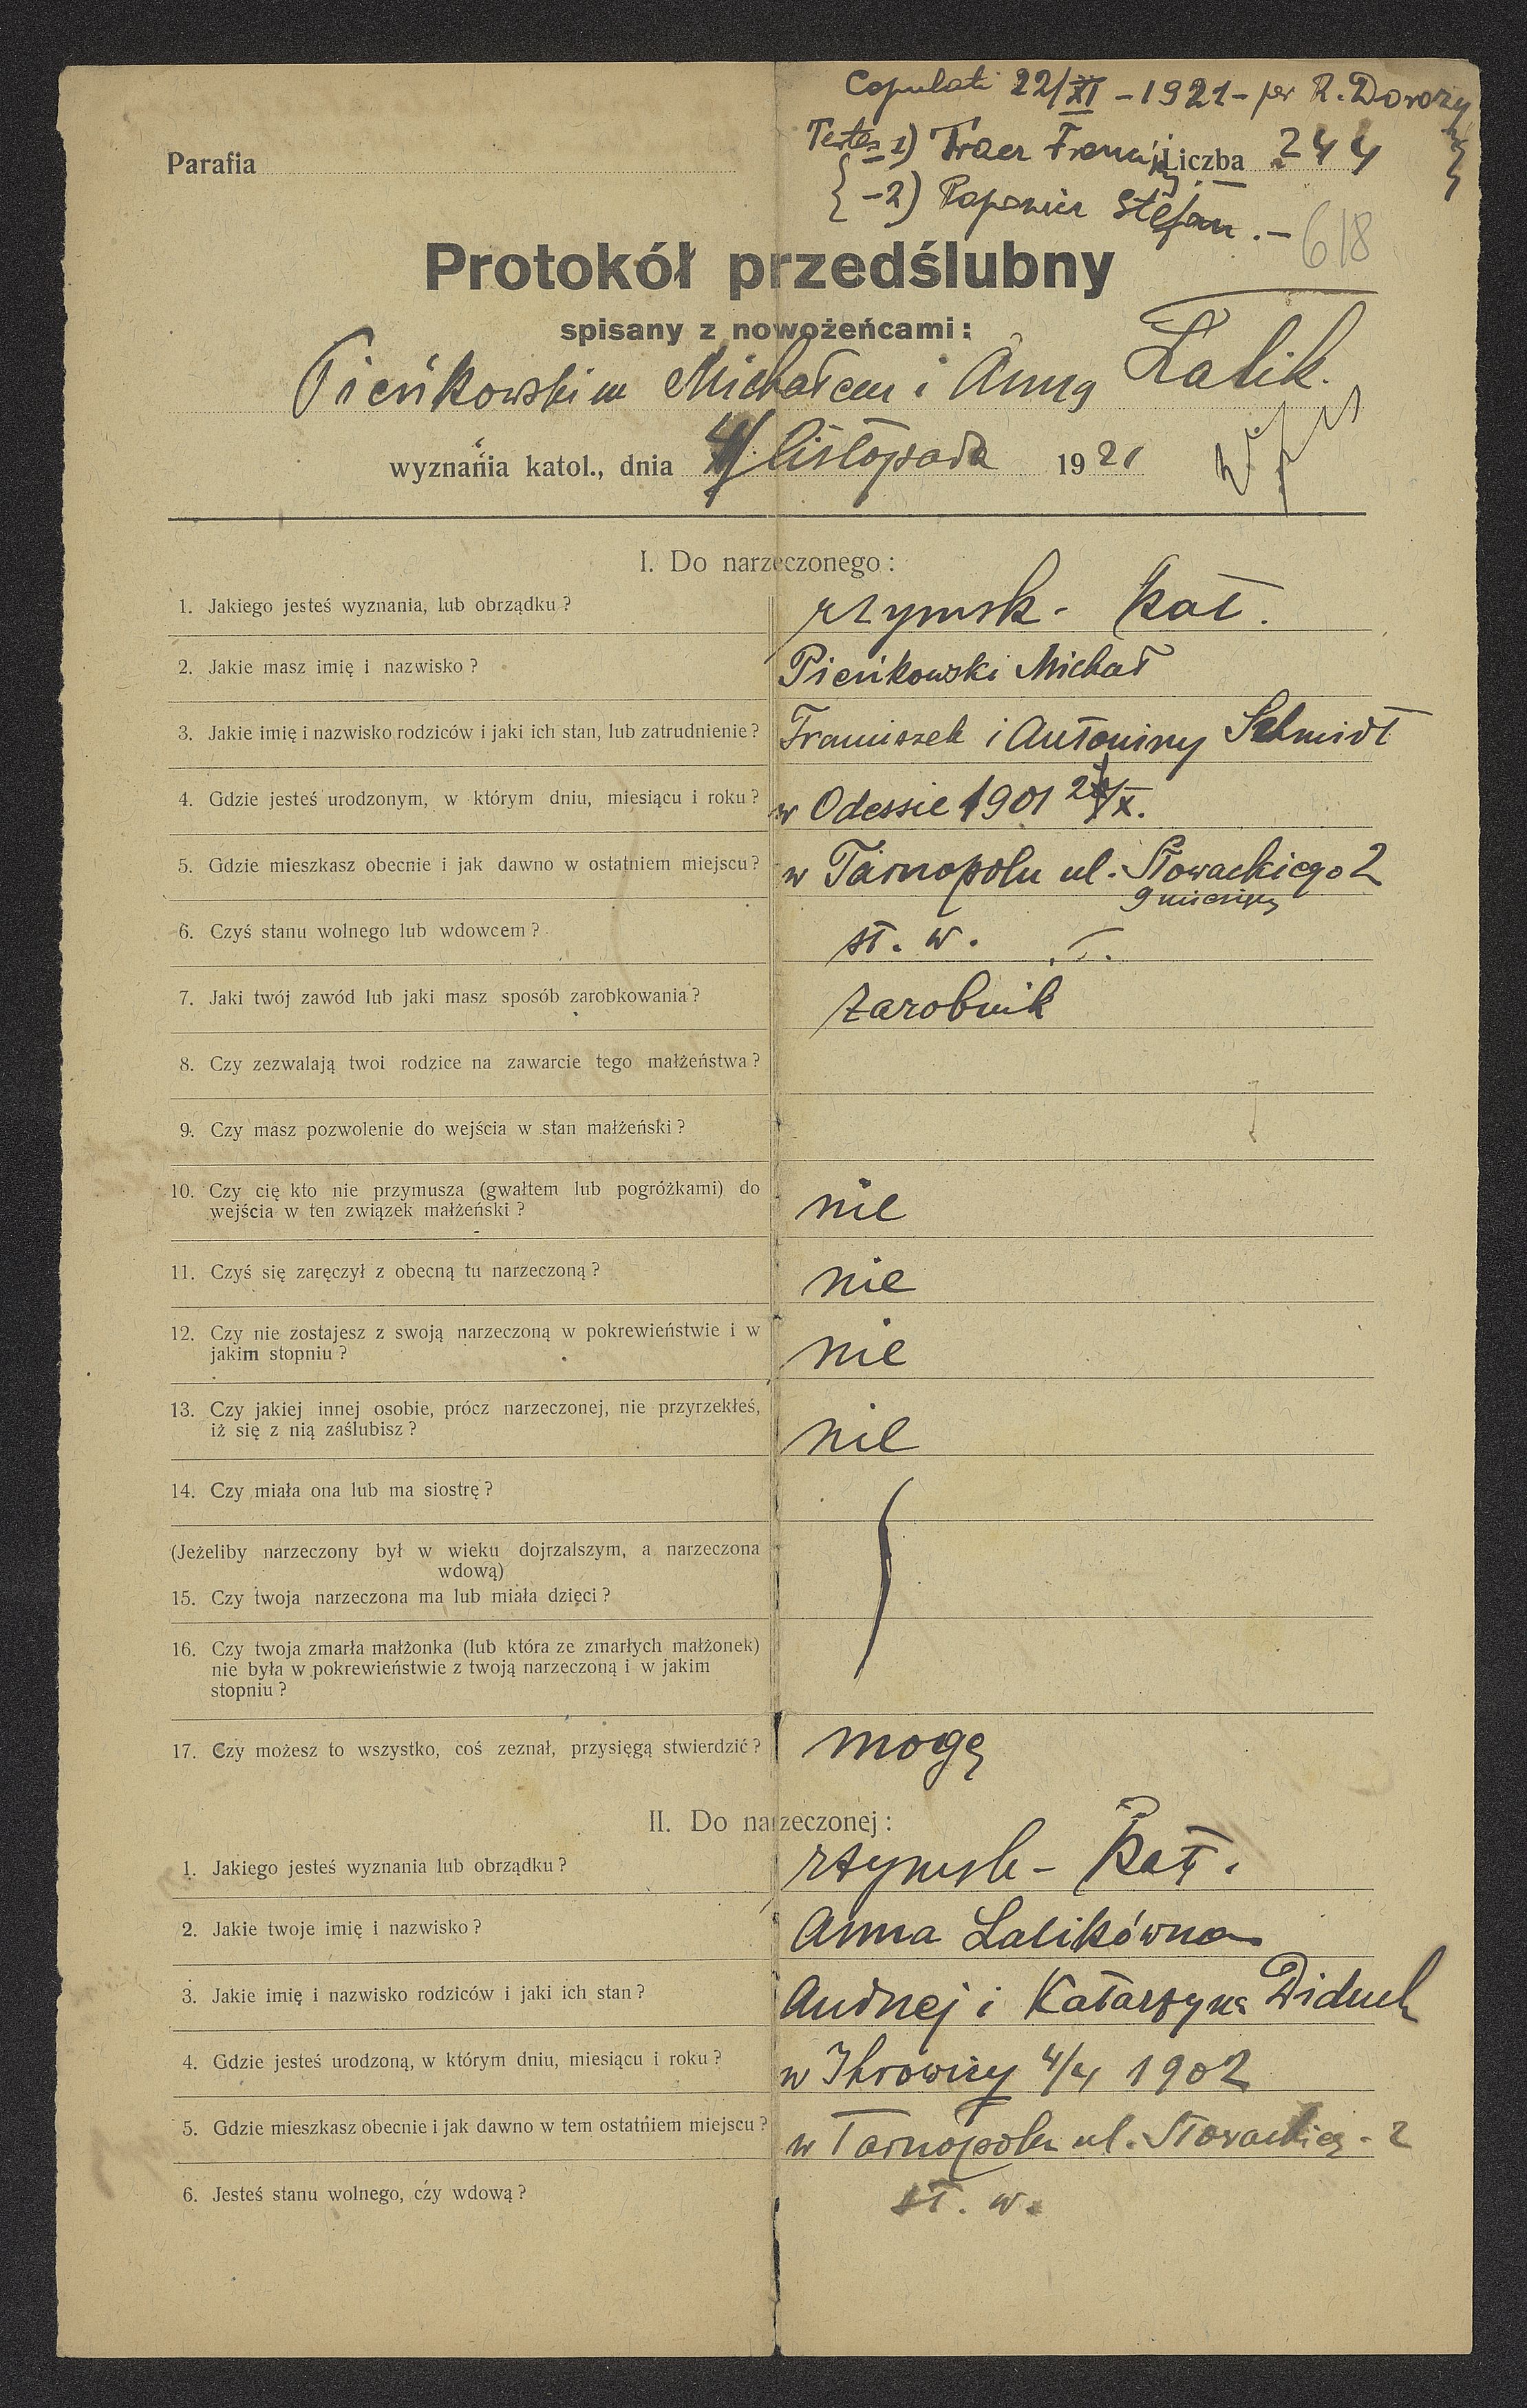 Copulati 22/XI - 1921 - per R. Dorozy
Testes 1) Traer
Parafia Liczba 244
-2) Stefan . -
618
Protokół przedślubny
spisany z nowożeńcami:
Pieńkowskim Michałem i Anną Lalik.
wyznania katol., dnia 4/ listopada 1921
I. Do narzeczonego:
1. Jakiego jesteś wyznania, lub obrządku? rzymsk - kat.
2. Jakie masz imię i nazwisko? Pieńkowski Michał
3. Jakie imię i nazwisko rodziców i jaki ich stan, lub zatrudnienie? Franciszek i Antoniny Schmidt
4. Gdzie jesteś urodzonym, w którym dniu, miesiącu i roku? w Odessie 1901
5. Gdzie mieszkasz obecnie i jak dawno w ostatniem miejscu? w Tarnopolu ul. Słowackiego 2
9 miesięcy
6. Czyś stanu wolnego lub wdowcem? st. w.
7. Jaki twój zawód lub jaki masz sposób zarobkowania? zarobnik
8. Czy zezwalają twoi rodzice na zawarcie tego małżeństwa?
9. Czy masz pozwolenie do wejścia w stan małżeński?
10. Czy cię kto nie przymusza (gwałtem lub pogróżkami) do
wejścia w ten związek małżeński? nie
11. Czyś się zaręczył z obecną tu narzeczoną? nie
12. Czy nie zostajesz z swoją narzeczoną w pokrewieństwie i w
jakim stopniu? nie
13. Czy jakiej innej osobie, prócz narzeczonej, nie przyrzekłeś,
iż się z nią zaślubisz? nie
14. Czy miała ona lub ma siostrę?
(Jeżeliby narzeczony był w wieku dojrzalszym, a narzeczona
wdową)
15. Czy twoja narzeczona ma lub miała dzieci?
16. Czy twoja zmarła małżonka (lub która ze zmarłych małżonek)
nie była w pokrewieństwie z twoją narzeczoną i w jakim
stopniu?
17. Czy możesz to wszystko, coś zeznał, przysięgą stwierdzić? mogę
II. Do narzeczonej:
1. Jakiego jesteś wyznania lub obrządku? rzymsk - kat.
2. Jakie twoje imię i nazwisko? Anna Lalikówna
3. Jakie imię i nazwisko rodziców i jaki ich stan? Andrzej i Katarzyna Diduch
4. Gdzie jesteś urodzoną, w którym dniu, miesiącu i roku? w Ihrowicy 4/4 1902
5. Gdzie mieszkasz obecnie i jak dawno w tem ostatniem miejscu? w Tarnopolu ul. Słowackieg - 2
6. Jesteś stanu wolnego, czy wdową? st. w.